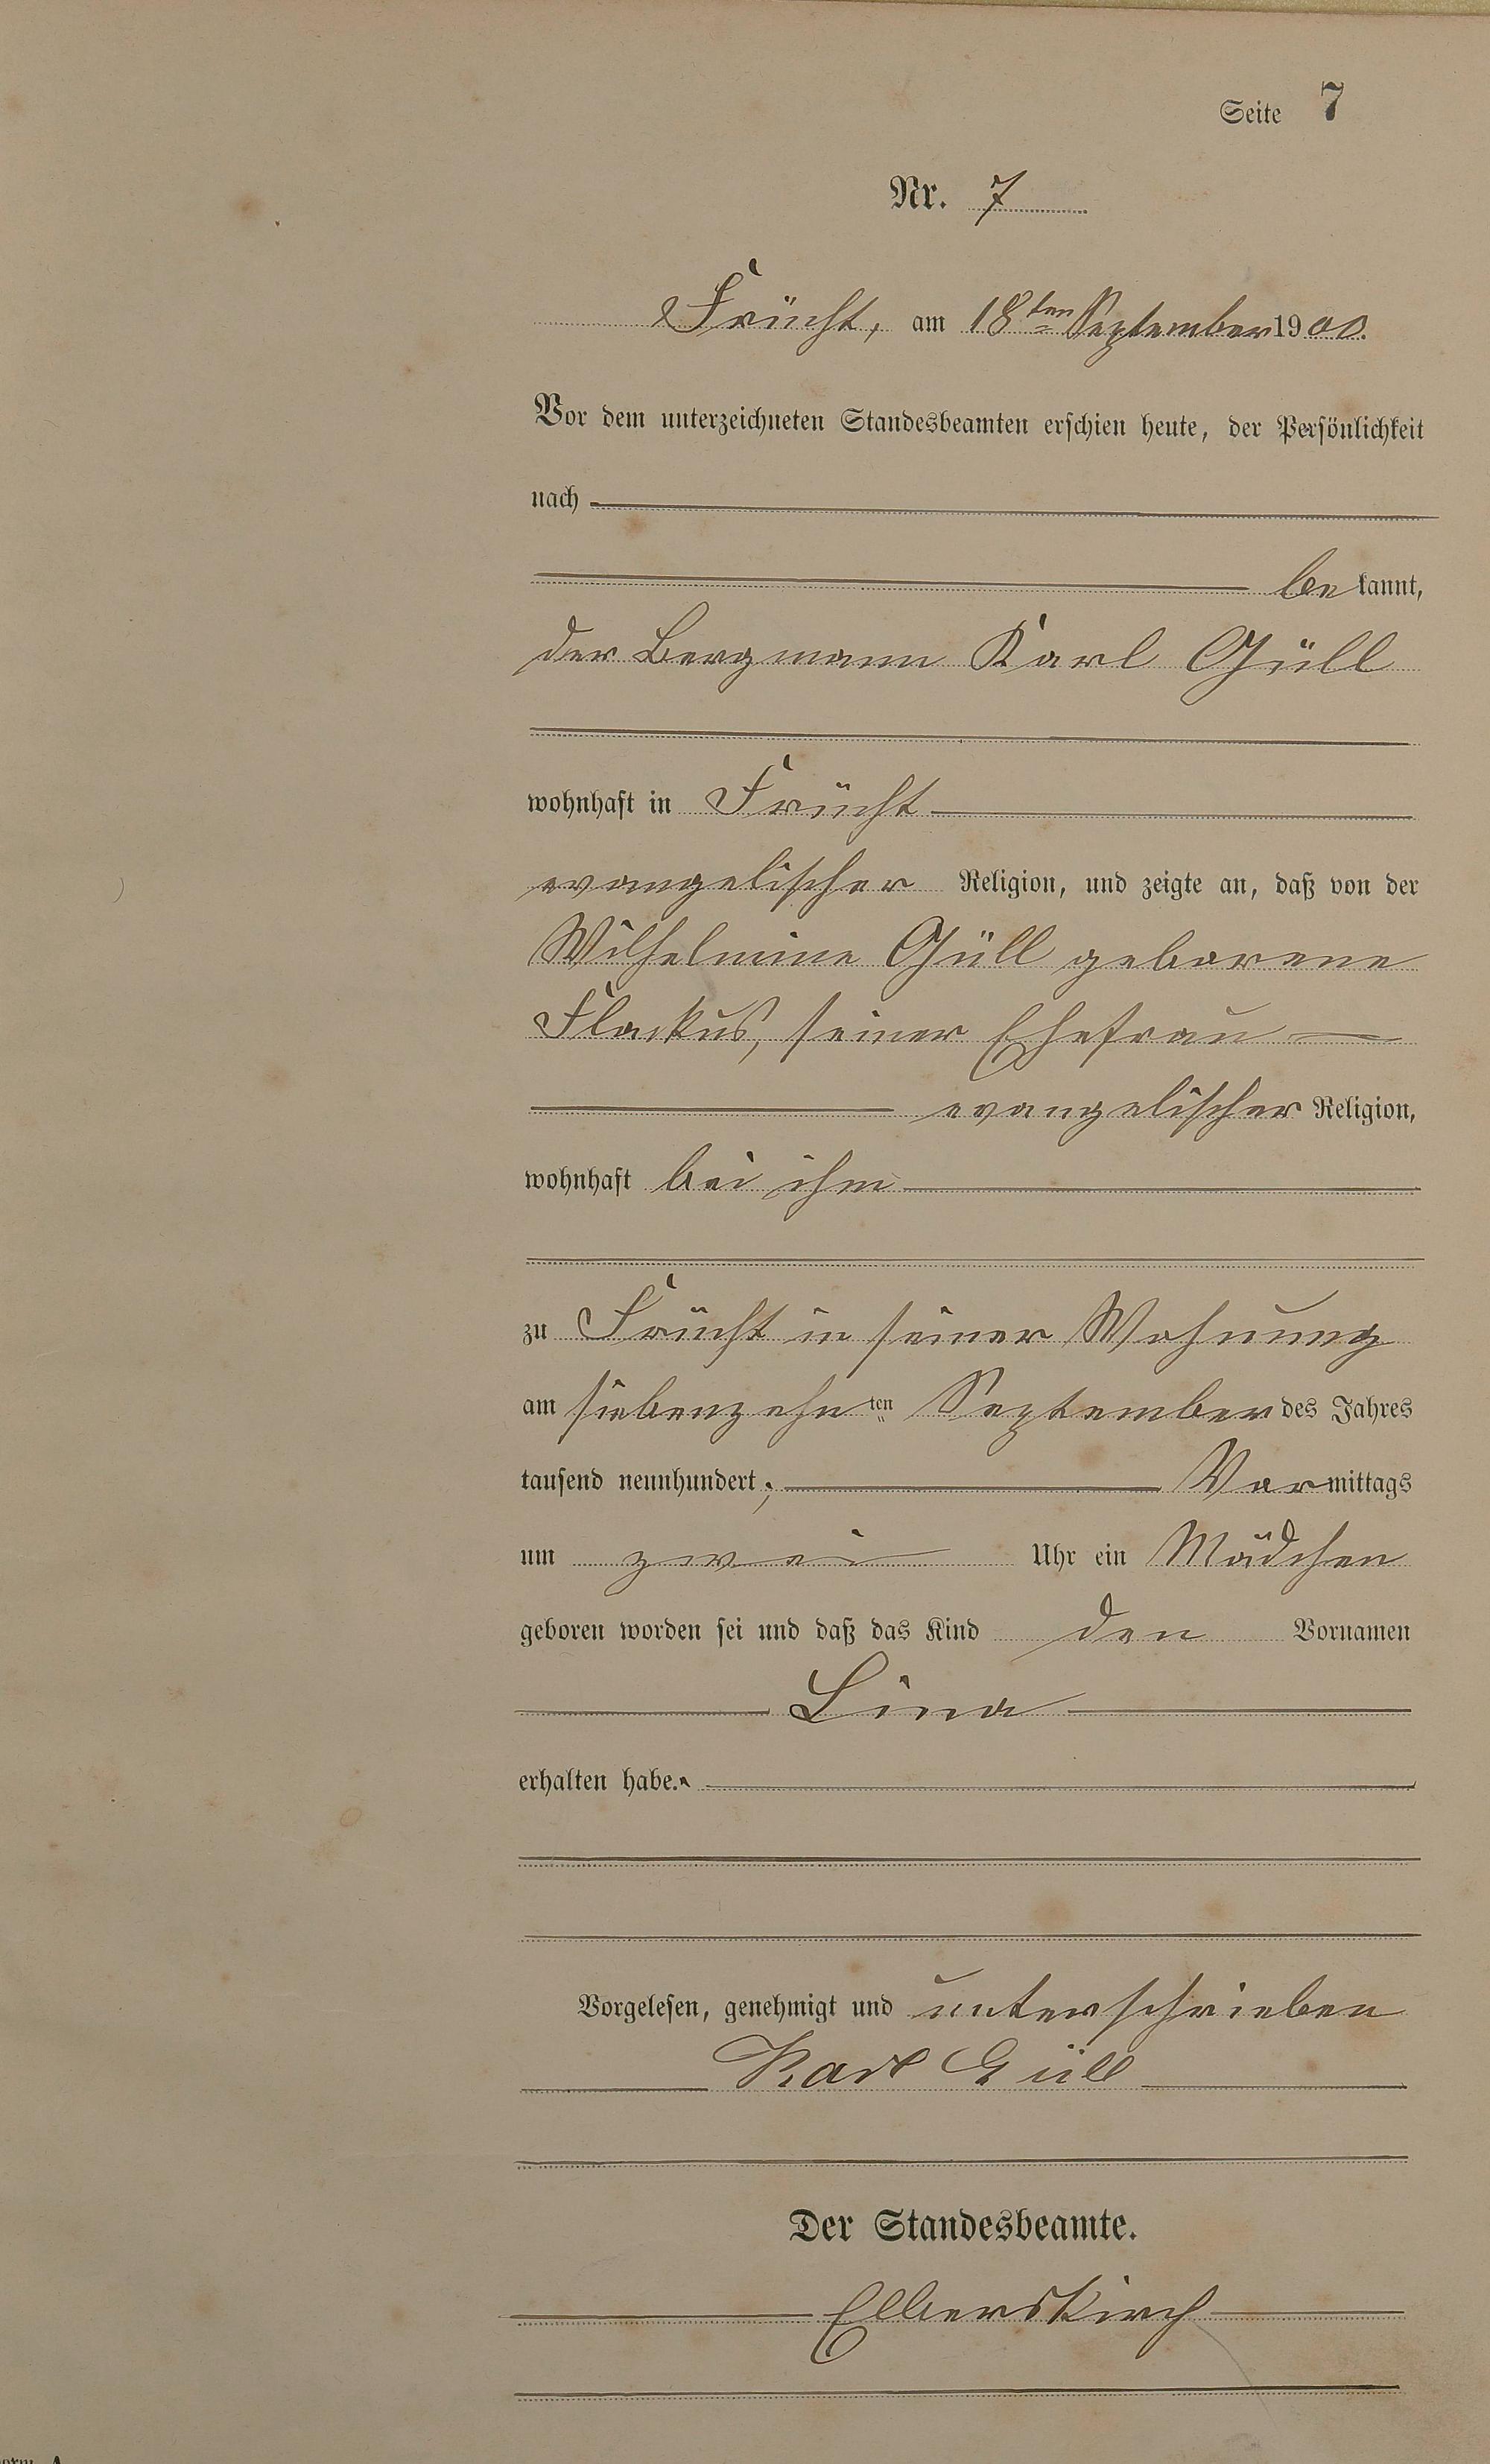 Seite 7
Nr. 7
Frücht, am 18ten September 1900.
Vor dem unterzeichneten Standesbeamten erschien heute, der Persönlichkeit
nach
be kannt,
der Bergmann Karl Güll
wohnhaft in Frücht
evangelischer Religion, und zeigte an, daß von der
Wilhelmine Güll geborene
Flackus, seiner Ehefrau
evangelischer Religion,
wohnhaft bei ihm
zu Frücht in seiner Wohnung
am siebenzehnten September des Jahres
tausend neunhundert, Vormittags
um zwei Uhr ein Mädchen
geboren worden sei und daß das Kind den Vornamen
Lina
erhalten habe.
Vorgelesen, genehmigt und unterschrieben
Karl Güll
Der Standesbeamte.
Elberskirch